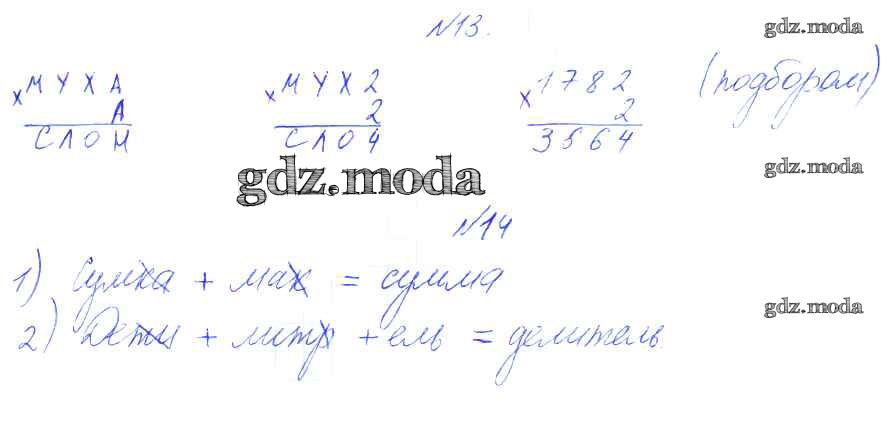 №13.
gdz.moda
× МУХА × МУХ2 × 1782 (подбором)
А 2 2
СЛОН СЛО4 3564
gdz.moda
gdz.moda
№14
1) Сумка + мах = сумма
gdz.moda
2) Дети + литр + ель = делитель